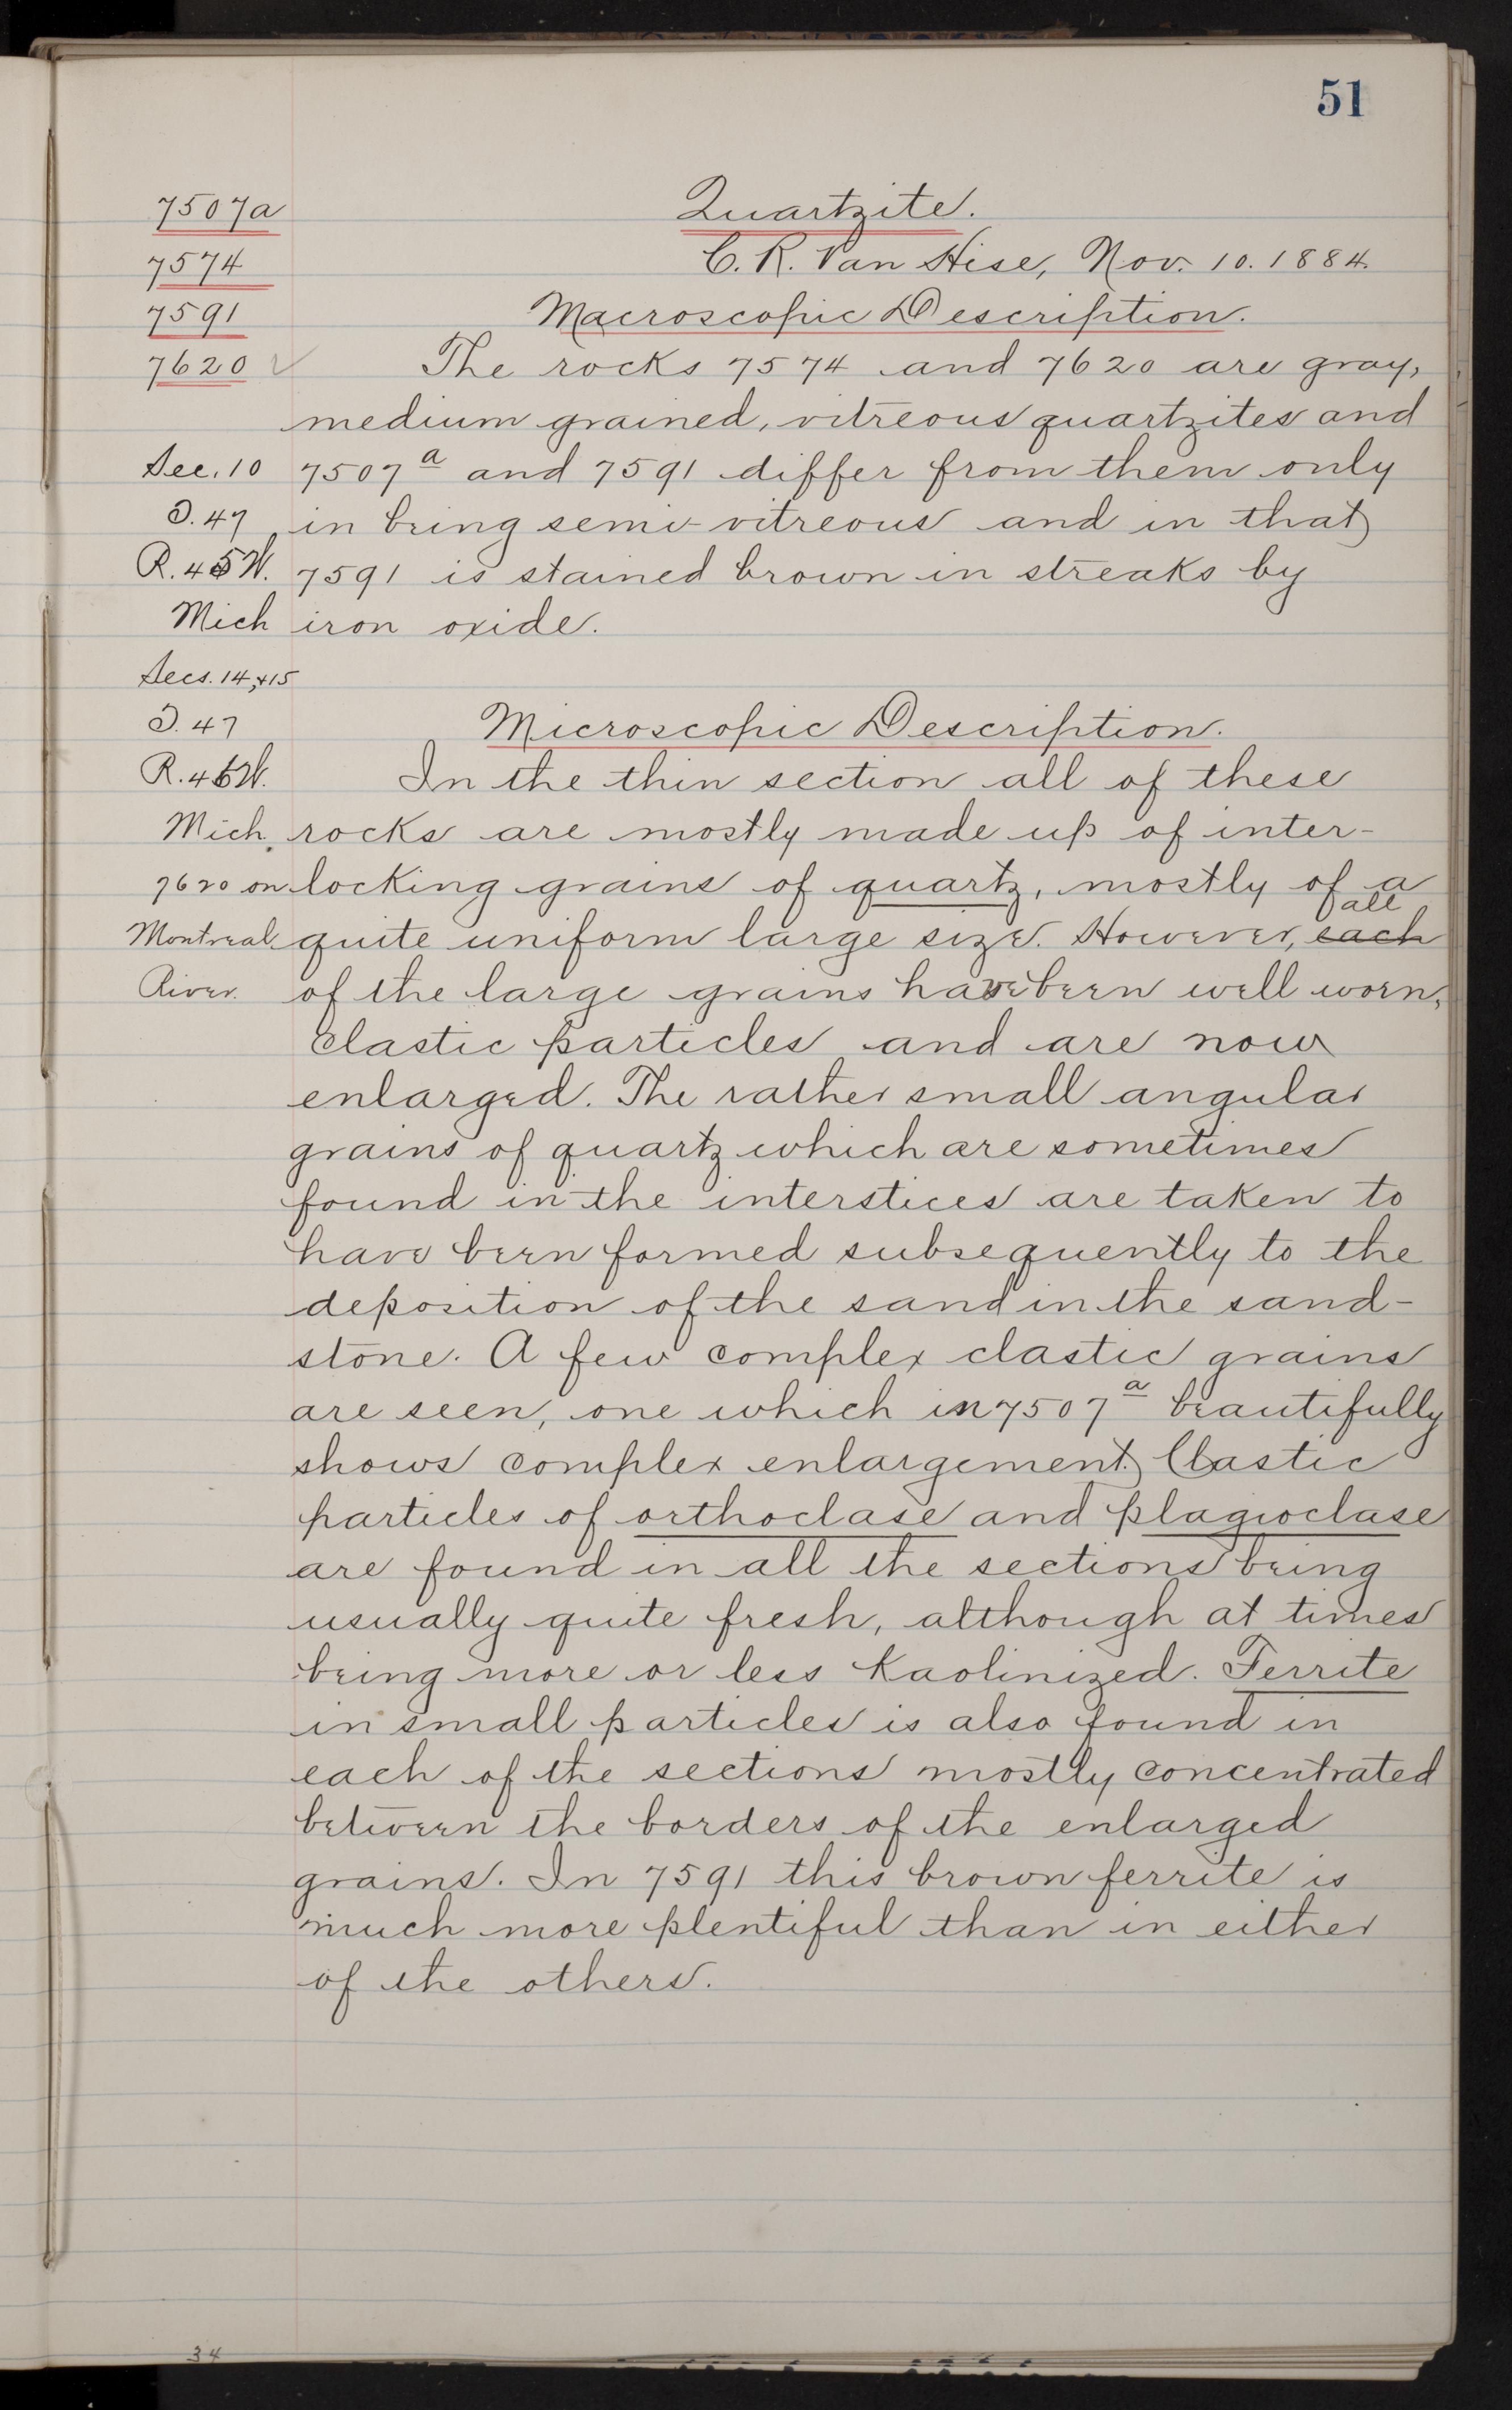 51
7507a
7574
7591
7620 ✓
Sec. 10
T. 47
R. 45 W.
Mich
Secs. 14, & 15
T. 47
R. 46 W.
Mich.
7620 on
Montreal
River.
Quartzite.
C. R. Van Hise, Nov. 10. 1884.
Macroscopic Description.
The rocks 7574 and 7620 are gray,
medium grained, vitreous quartzites and
7507a and 7591 differ from them only
in being semi-vitreous and in that
7591 is stained brown in streaks by
iron oxide.
Microscopic Description.
In the thin section all of these
rocks are mostly made up of inter-
locking grains of quartz, mostly of a
all
quite uniform large size. However, each
of the large grains have been well worn,
clastic particles and are now
enlarged. The rather small angular
grains of quartz which are sometimes
found in the interstices are taken to
have been formed subsequently to the
deposition of the sand in the sand-
stone. A few complex clastic grains
are seen, one which in 7507a beautifully
shows complex enlargement. Clastic
particles of orthoclase and plagioclase
are found in all the sections being
usually quite fresh, although at times
being more or less kaolinized. Ferrite
in small particles is also found in
each of the sections mostly concentrated
between the borders of the enlarged
grains. In 7591 this brown ferrite is
much more plentiful than in either
of the others.
34